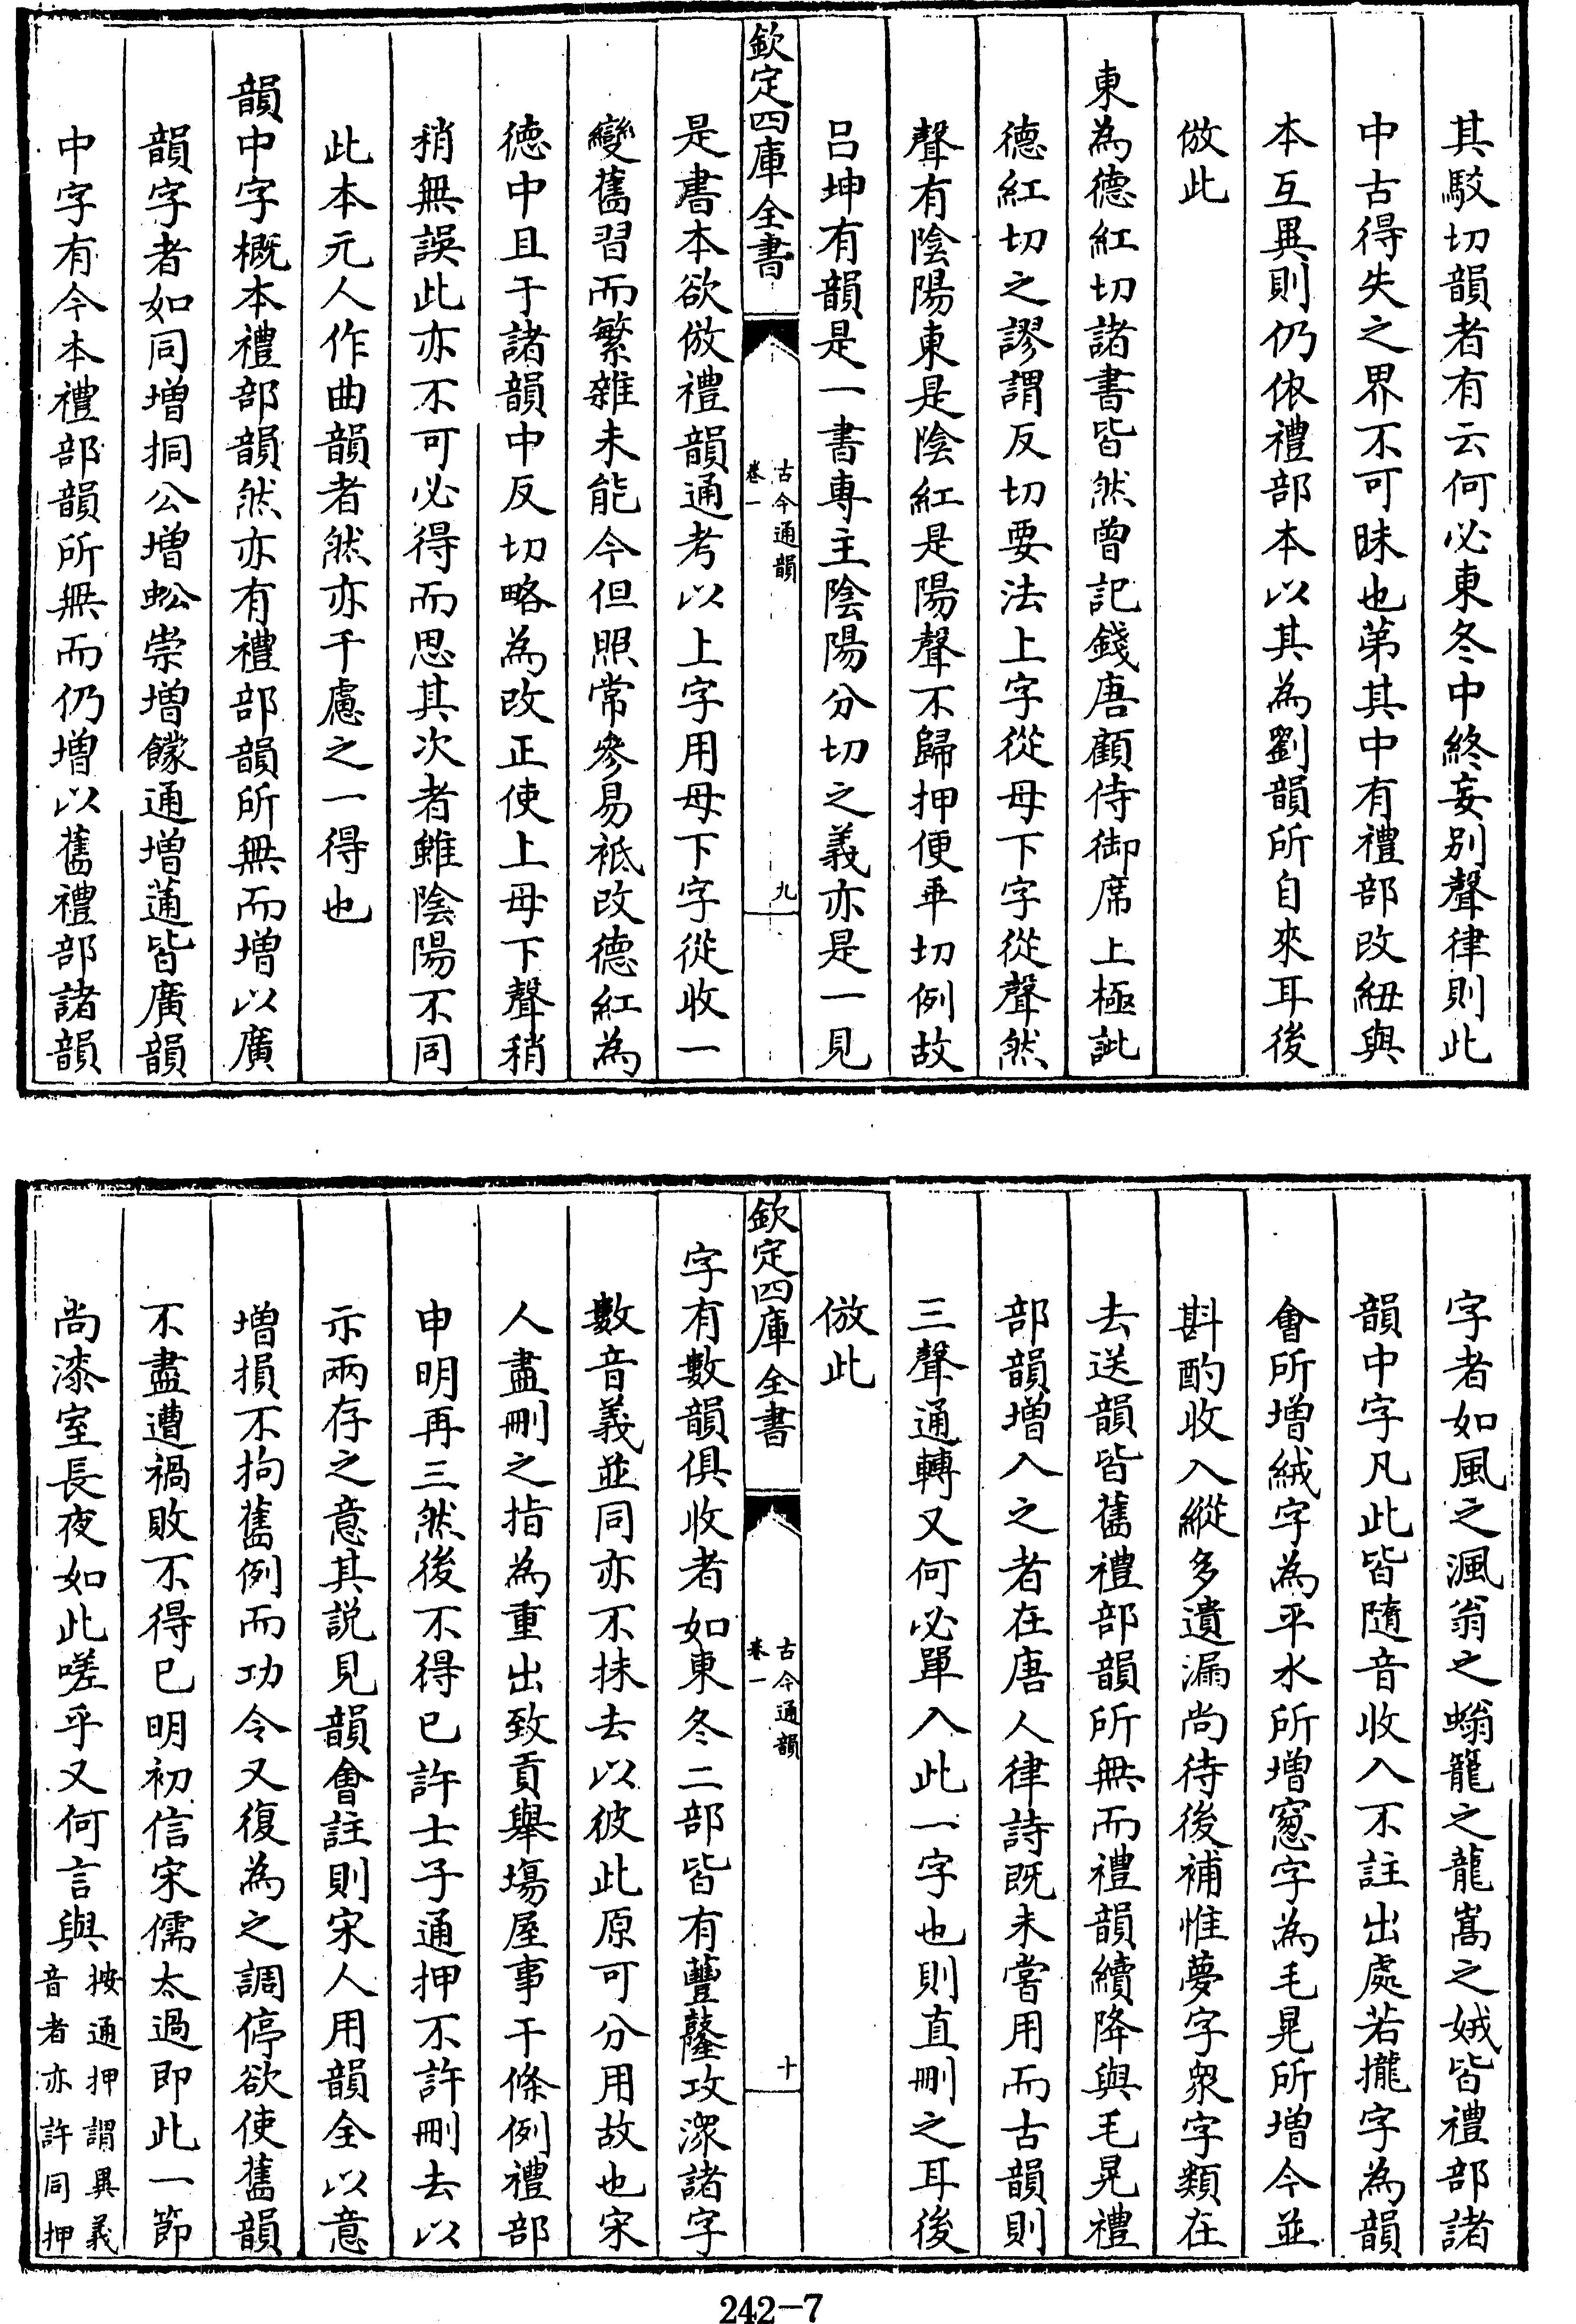 其駁切韻者有云何必東冬中終妄別聲律則此
中古得失之界不可昧也第其中有禮部改紐與
本互異則仍依禮部本以其為劉韻所自來耳後
倣此
東為德紅切諸書皆然曾記錢唐顧侍御席上極訿
德紅切之謬謂反切要法上字從母下字從聲然
聲有陰陽東是陰紅是陽聲不歸押便乖切例故
呂坤有韻是一書專主陰陽分切之義亦是一見
欽定四庫全書
古今通韻
卷一
九
是書本欲倣禮韻通考以上字用母下字從收一
變舊習而繁雜未能今但照常參易袛改德紅為
德中且于諸韻中反切略為改正使上母下聲稍
稍無誤此亦不可必得而思其次者雖陰陽不同
此本元人作曲韻者然亦千慮之一得也
韻中字概本禮部韻然亦有禮部韻所無而增以廣
韻字者如同增挏公增蚣崇增饛通增蓪皆廣韻
中字有今本禮部韻所無而仍增以舊禮部諸韻
字者如風之渢翁之螉籠之龍嵩之娀皆禮部諸
韻中字凡此皆隨音收入不註出處若攏字為韻
會所增絨字為平水所增窻字為毛晃所增今並
斟酌收入縱多遺漏尚待後補惟夢字衆字類在
去送韻皆舊禮部韻所無而禮韻續降與毛晃禮
部韻增入之者在唐人律詩既未嘗用而古韻則
三聲通轉又何必單入此一字也則直刪之耳後
倣此
欽定四庫全書
古今通韻
卷一
十
字有數韻俱收者如東冬二部皆有蘴鼕攻潀諸字
數音義並同亦不抹去以彼此原可分用故也宋
人盡刪之指為重出致貢舉塲屋事干條例禮部
申明再三然後不得已許士子通押不許刪去以
示兩存之意其説見韻會註則宋人用韻全以意
增損不拘舊例而功令又復為之調停欲使舊韻
不盡遭禍敗不得已明初信宋儒太過即此一節
尚漆室長夜如此嗟乎又何言與
按通押謂異義
音者亦許同押
242-7